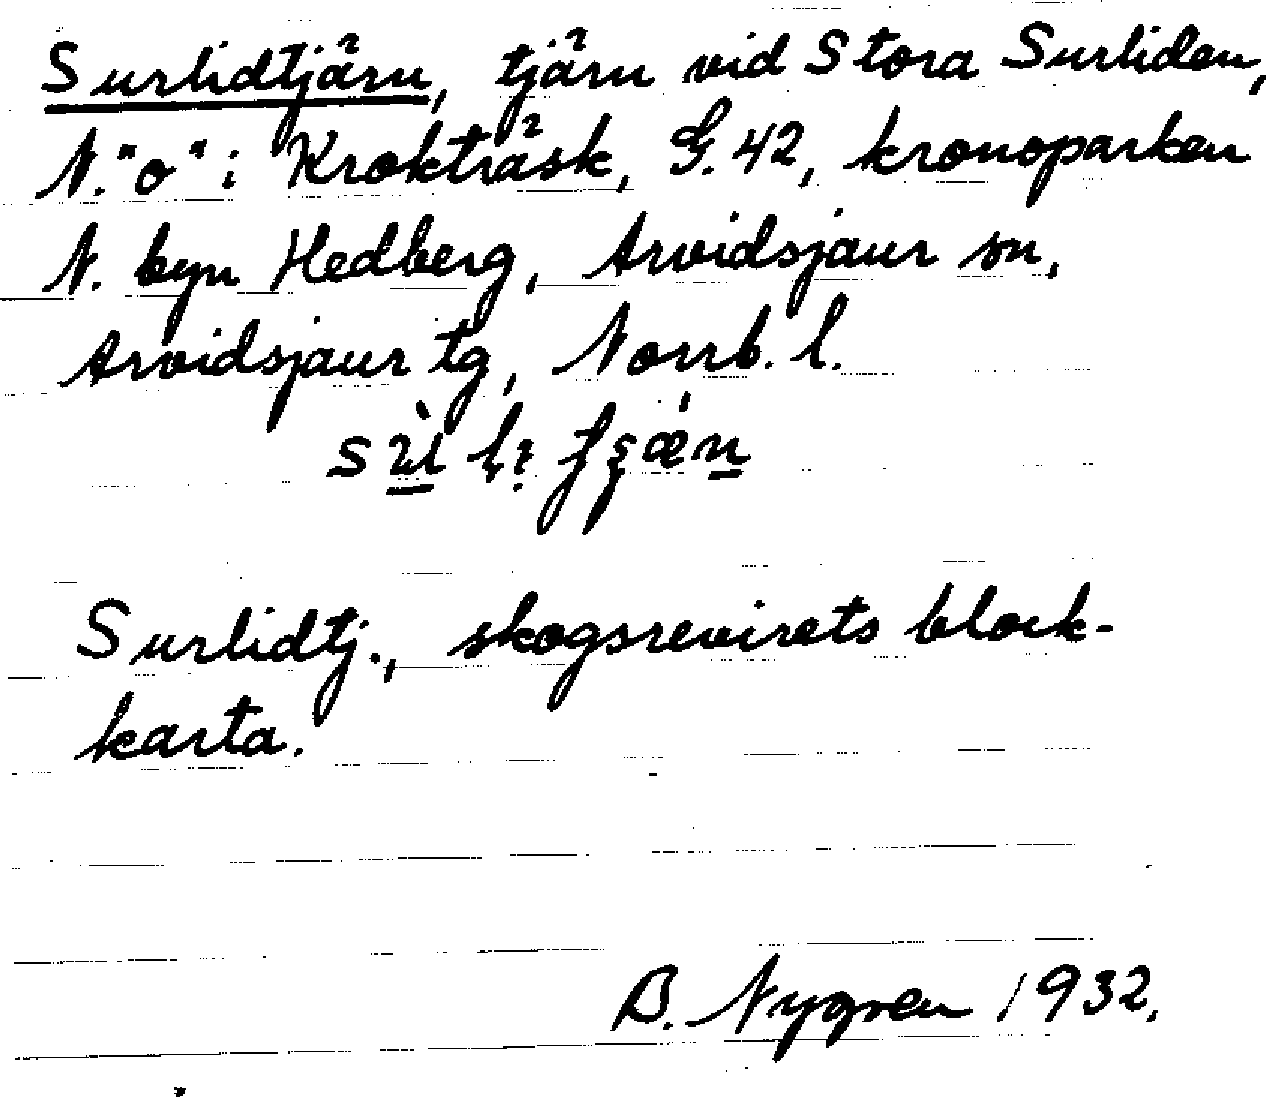 Surlidtjärn, tjärn vid Stora Surliden,
N. "o" i Kroktråsk, G. 42, kronoparken
N. byn Hedberg, Arvidsjaur sn,
Arvidsjaur tg, Norrb. l.
Surlidtj., skogsrevirets block-
karta.
B. Nygren 1932.